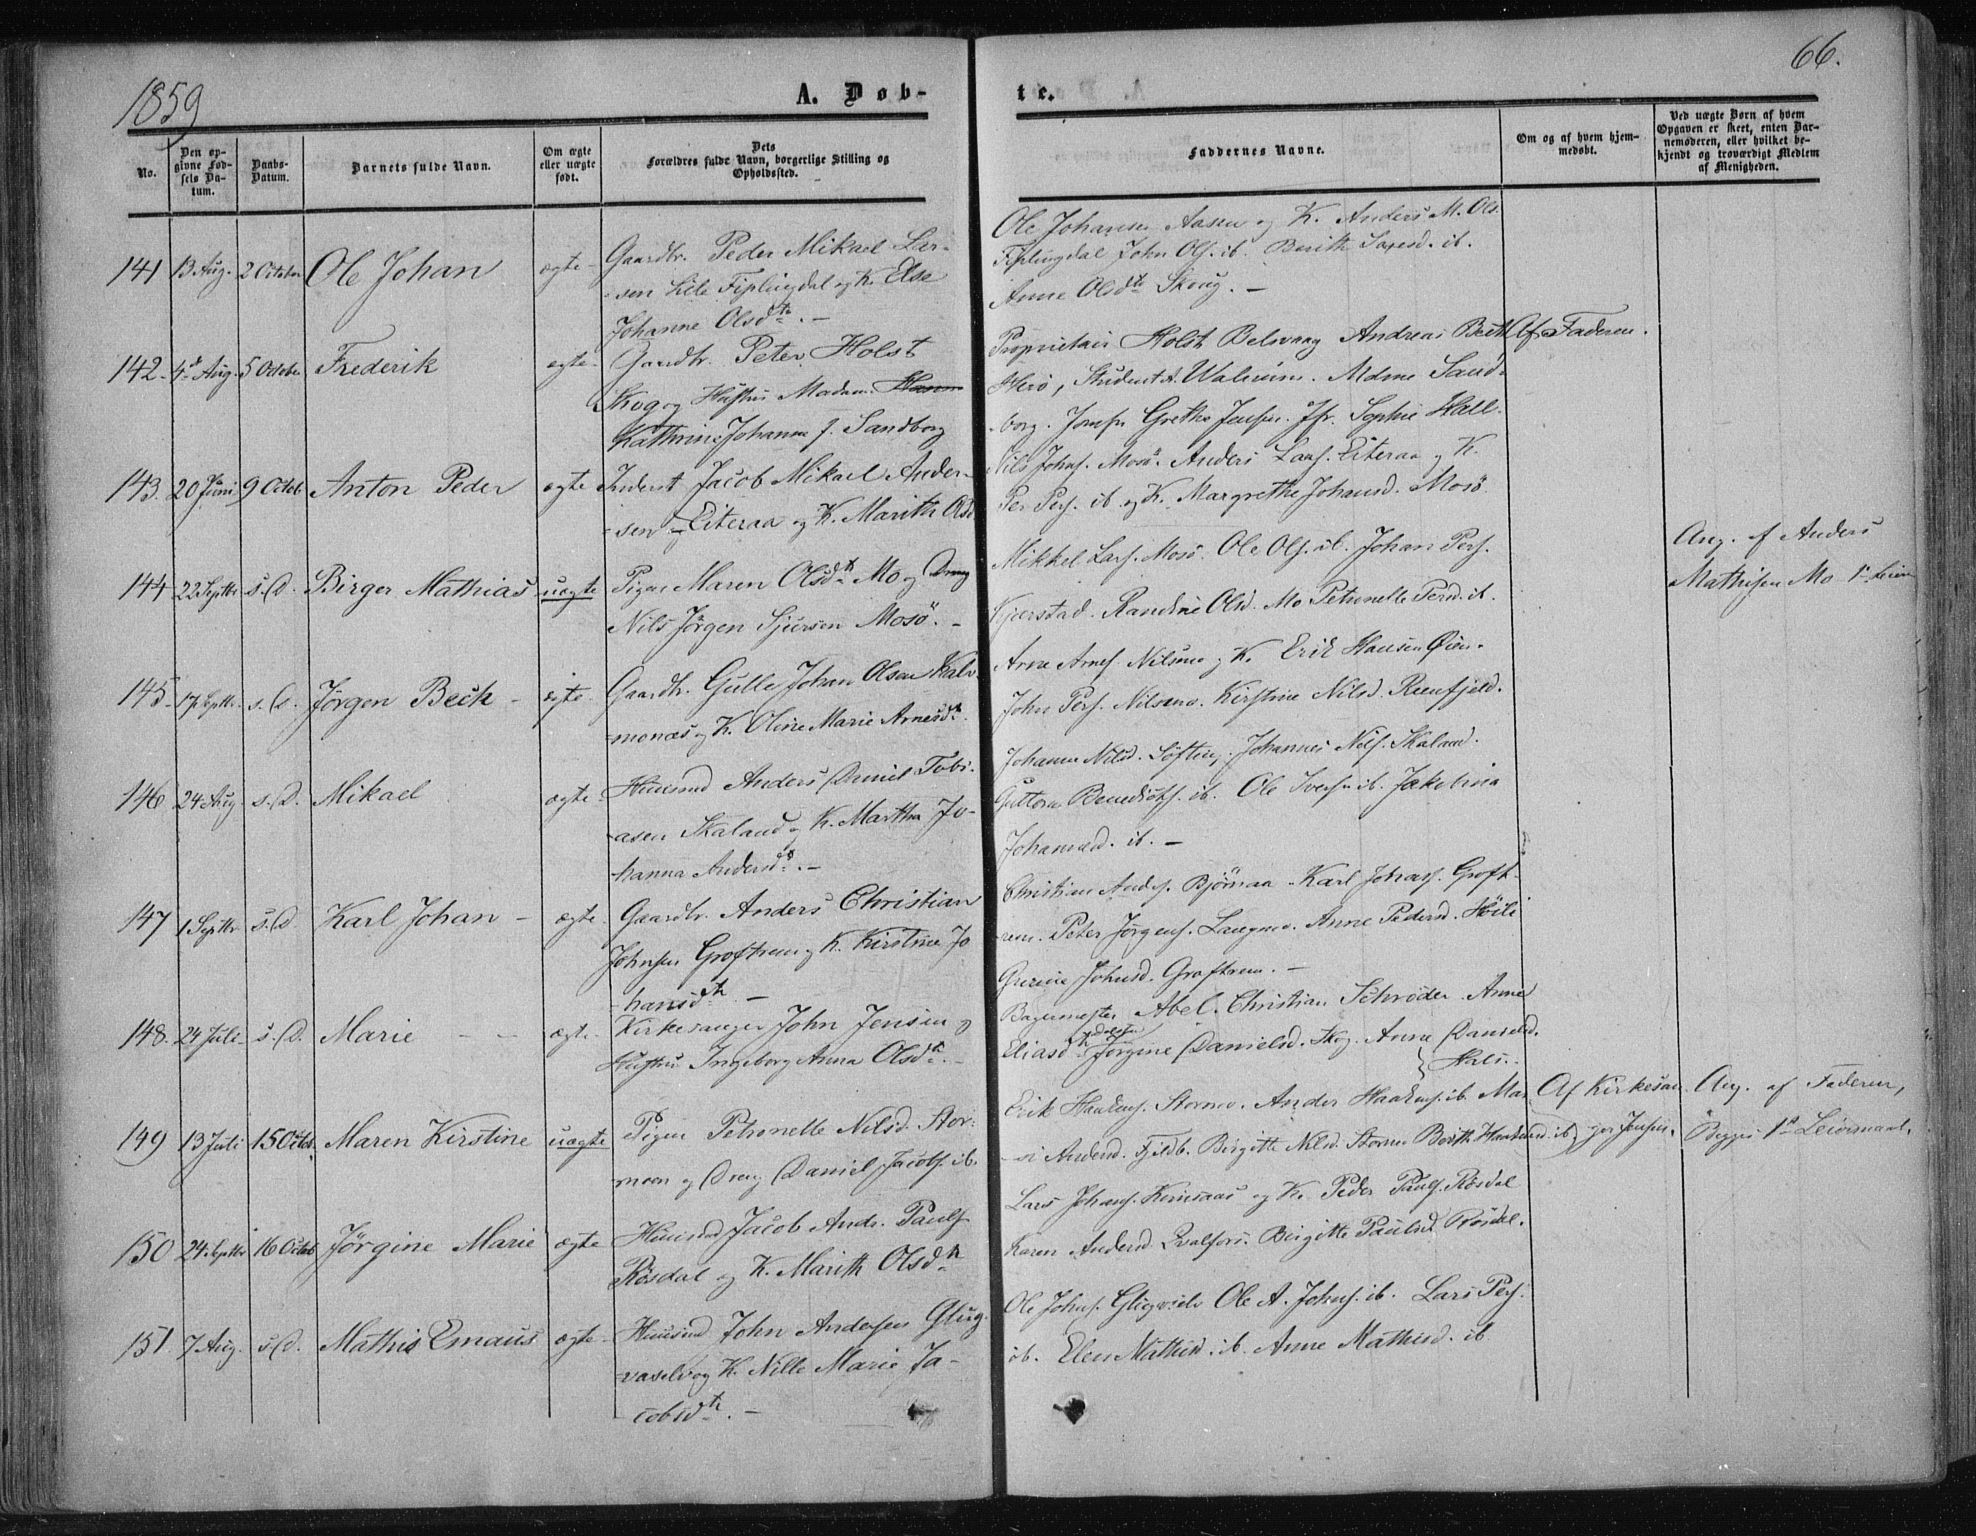 1859
A. Døb-
te.
66.
No.
Den op-
givne Fød-
sels Da-
tum.
Daabs-
Datum.
Barnets fulde Navn.
Om ægte
eller uægte
født.
Dets
Forældres fulde Navn, borgerlige Stilling og
Opholdssted.
Faddernes Navne.
Om og af hvem hjem-
medøbt.
Ved uægte Børn af hvem
Opgaven er skeet, enten Bar-
nemoderen, eller hvilket be-
kjendt og troværdigt Medlem
af Menigheden.
141 13 Aug. 2 October Ole Johan ægte- Gaardbr. Peder Mikael Lar-
sen Lile Fiplingdal og K. Else
Johanne Olsdtr. -
Ole Johansen Aasen og K. Anders M. Ols.
Fiplingdal John Ols. ib. Berith ib.
Anne Olsdtr Skoug. -
142. 4de Aug. 5 October Frederik ægte- Gaardbr. Peter Holst
Skog og Hustru Madam
Kathrine Johanna f. Sandborg
Proprietair Holst Belsvaag Andreas Beck Af Faderen.
Herö, Student A. Mdme Sand-
borg. Jomfr Grethe Jensen. Jfr. Sophie Hall.
143. 20 Juni 9 Octob Anton Peder ægte Inderst Jacob Mikael Ander-
sen Eiteraa og K. Marith Olsd
Nils Johns. Mosö. Anders Lars. Eiteraa og K.
Per Pers. ib og K. Margrethe Johansd. Mosö.
144 22 Septbr s. D. Birger Mathias uægte Pigen Maren Olsdtr Mo og Dreng
Nils Jörgen Sjursen Mosö. -
Mikkel Lars. Mosö. Ole Ols. ib. Johan Pers.
Kjerstad. Randine Olsd. Mo Petronelle Persd. ib.
Ang. af Anders
Mathisen Mo 1ste Leier
145- 17 Septbr. s. D. Jörgen Beck - ægte- Gaardbr. Gulle Johan Olsen Kalv-
monæs og K. Oline Marie Arnesdtr.
Arne Arnes. Nilsmo og K. Erik Hansen Øien.
John Pers. Nilsmo. Kirstine Nilsd. Reenfjeld.
146 24 Aug s. D. Mikael ægte- Huusmd Anders Daniel Tobi-
asen Skaland og K. Martha Jo-
hanna Andersdtr. -
Johanna Nilsd. Softing. Johannes Nils. Skaland.
Guttorm Benedicts. ib. Ole Ivers. ib. Jakobina
Johannesd. ib. -
147 1 Septbr s. D. Karl Johan - ægte- Gaardbr. Anders Christian
Johnsen Groftrem og K. Kirstine Jo
hansdtr. -
Christian Anders. Bjørnaa. Karl Johns. Groft-
rem. Peter Jörgens. Langmo. Anne Pedersd. Höili
Gurine Johnsd. Groftrem. -
148. 24 Juli s. D. Marie - - ægte- Kirkesanger John Jensen og
Hustru Ingeborg Anna Olsdtr. -
Bagermester Abel. Christian Schrøder. Anne
Eliasdtr Dolstad Jorgine Danielsd. Skog. Anne Danielsd.
Hals.
149 13 Juli 15 Octob. Maren Kirstine uægte Pigen Petronelle Nilsd. Stor-
moen og Dreng Daniel Jacobs. ib.
Erik Haakens. Stormo. Ander Haakens. ib. Mar
Andersd. Fjeldb. Birgitte Nilsd. Stormo Berith Haakensd ib.
Af Kirkesan-
ger Jensen.
Ang. af Faderen,
Begges 1ste Leiermaal.
150 24. Septbr 16 Octob Jörgine Marie ægte Huusmd Jacob Andr. Pauls
Røsdal og K. Marith Olsdtr
Lars Johans. og K. Peder Pauls. Røsdal
Karen Andersd Qvalfors. Birgitte Paulsd Røsdal.
151. 7 Aug. s. D. Mathis Emaus ægte- Huusmd John Andersen Glug-
vaselv og K. Nille Marie Ja-
cobsdtr. -
Ole Johns. Ole A. Johns. ib. Lars Pers.
ib. Elen Mathisd. ib. Anne Mathisd. ib